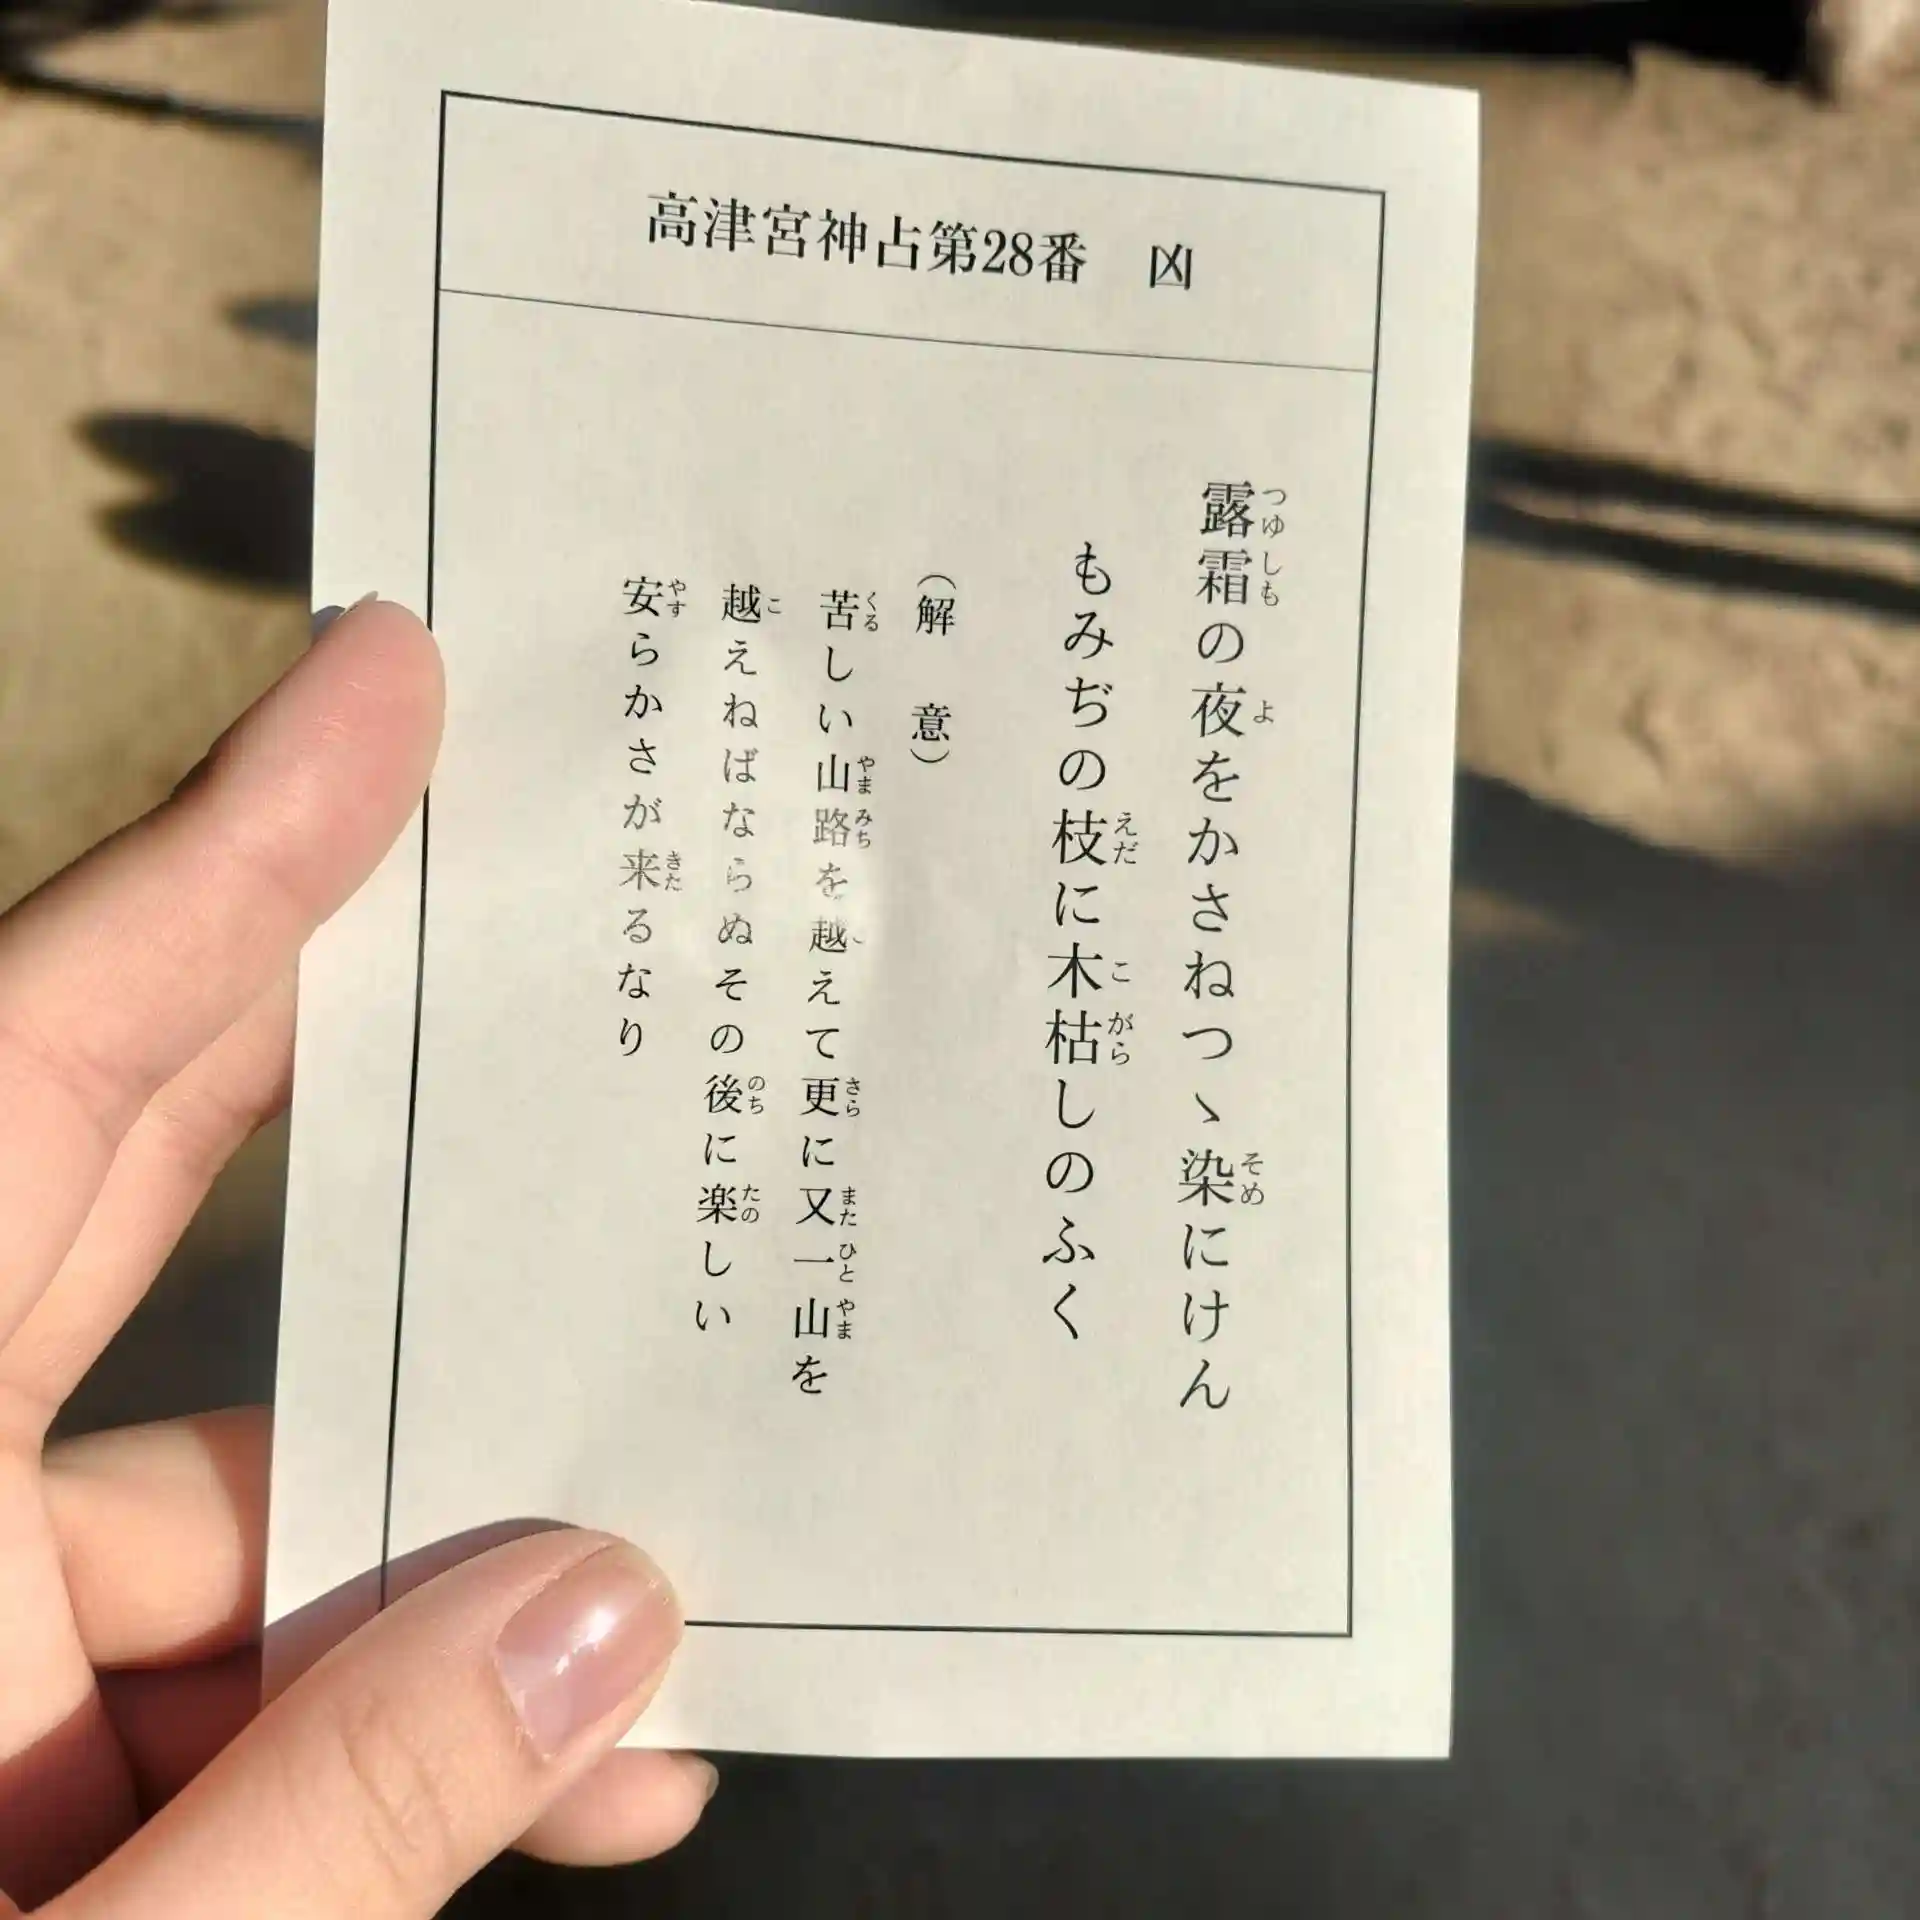 高津宮神占第28番　凶
露霜の夜をかさねつゝ染にけん
もみぢの枝に木枯しのふく
（解　意）
苦しい山路を越えて更に又一山を
越えねばならぬその後に楽しい
安らかさが来るなり